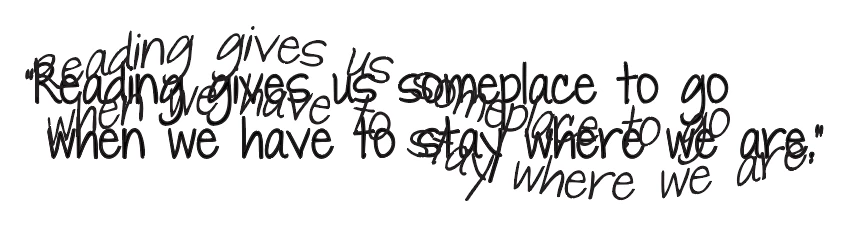 "Reading gives us someplace to go
when we have to stay where we are."
Reading gives us someplace to go
when we have to stay where we are.